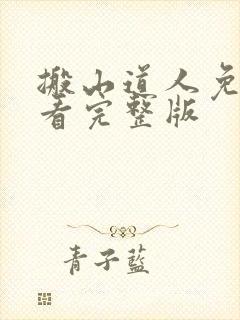 搬山道人免
看完整版
青子藍